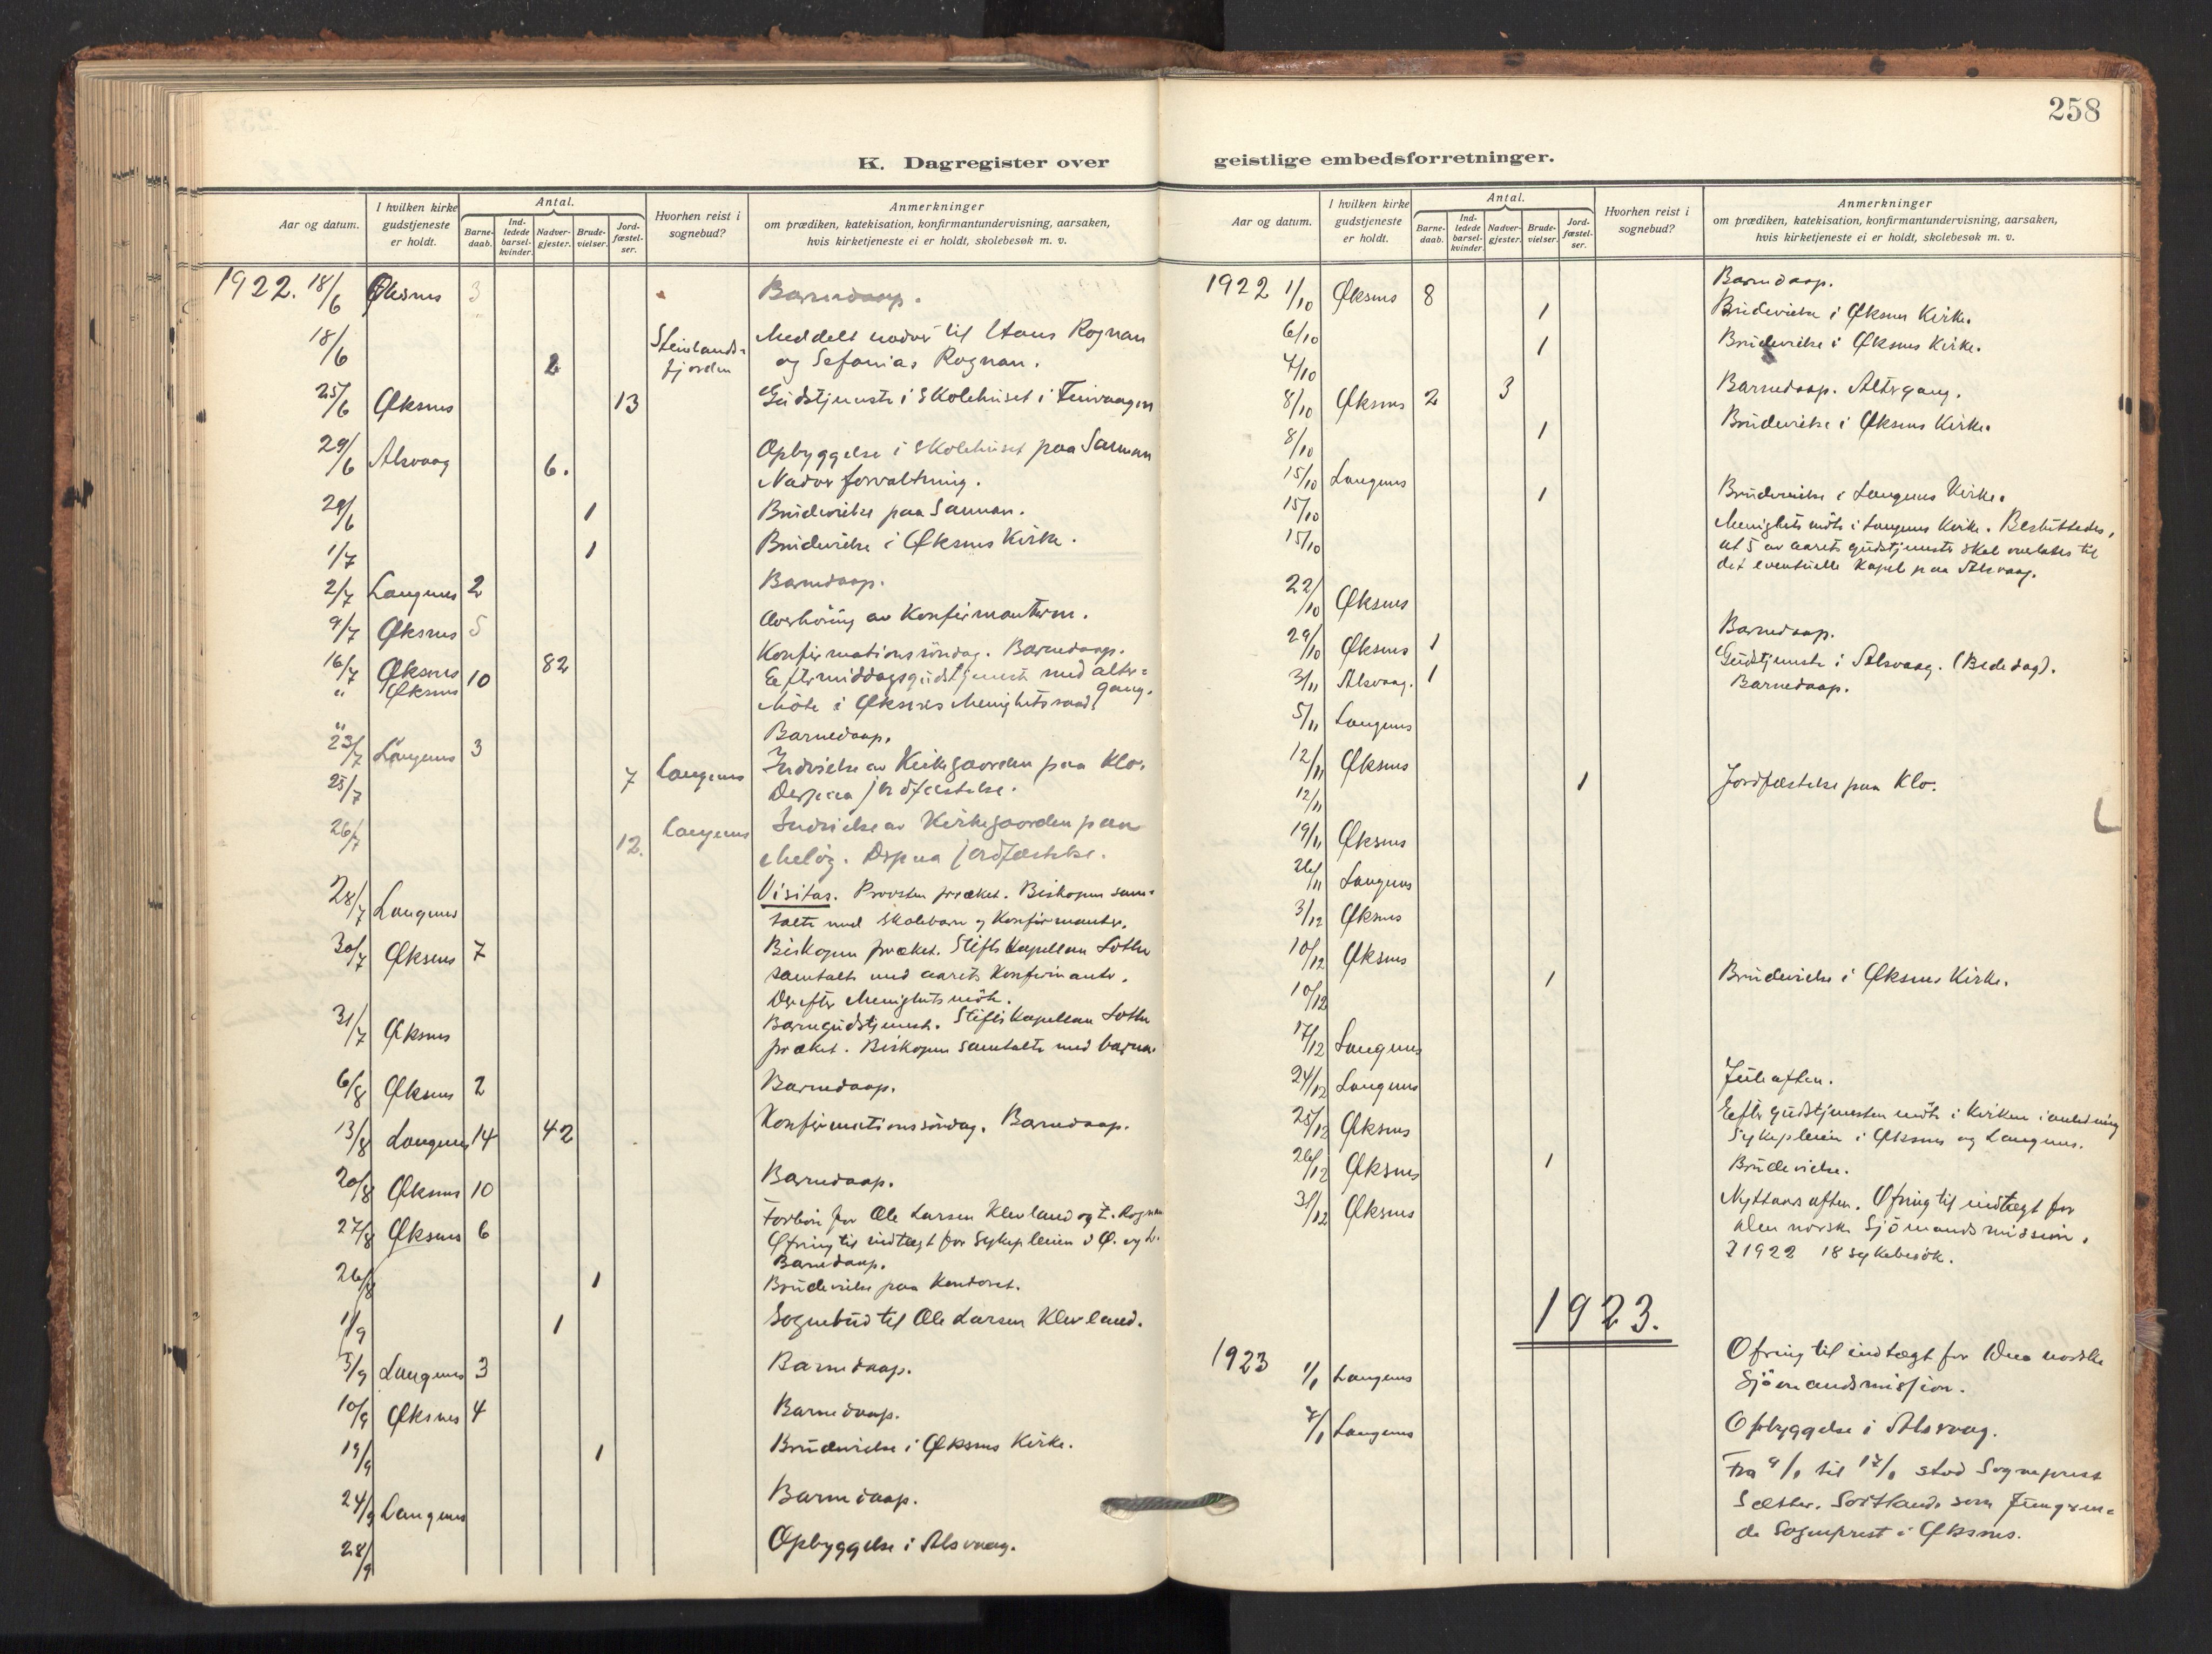 258
K. Dagregister over
Aar og datum.
I hvilken kirke gudstjeneste er holdt.
Antal.
Barne-daab.
Ind-ledede barsel-kvinder.
Nadver-gjester.
Brude-vielser.
Jord-fæstel-ser.
Hvorhen reist i sognebud?
Anmerkninger
om prædiken, katekisation, konfirmantundervisning, aarsaken,
hvis kirketjeneste ei er holdt, skolebesøk m. v.
1922. 18/6 Øksnes 3 Barnedaap.
18/6 2 Steinlands-fjorden Meddelt nadver til Hans Rognan
og Sefanias Rognan.
25/6 Øksnes 13 Gudstjeneste i Skolehuset i Tinvaagen
29/6 Alsvaag 6. Opbyggelse i Skolehuset paa
Nadverforvaltning.
29/6 1 Brudevielse paa
1/7 1 Brudevielse i Øksnes Kirke.
2/7 Langenes 2 Barnedaap.
9/7 Øksnes 5 Overhöring av Konfirmanterne.
16/7 Øksnes 10 82 Konfirmationssöndag. Barnedaap.
" Øksnes Eftermiddagsgudstjeneste med alter-
gang.
" Möte i Øksnes Menighetsraad.
23/7 Langenes 3 Barnedaap.
25/7 7 Langenes Indvielse av Kirkegaarden paa Klo.
Derpaa jordfæstelse.
26/7 12. Langenes Indvielse av Kirkegaarden paa
Melöy. Derpaa jordfæstelse.
28/7 Langenes Visitas. Provsten præket. Biskopen sam-
talte med skolebarn og Konfirmanter.
30/7 Øksnes 7 Biskopen præket. Stiftskapellan Lothe
samtalte med aarets Konfirmanter.
Derefter Menighetsmöte.
31/7 Øksnes Barnegudstjeneste. Stiftskapellan Lothe
præket. Biskopen samtalte med barna.
6/8 Øksnes 2 Barnedaap.
13/8 Langenes 14 42 Konfirmationssöndag. Barnedaap.
20/8 Øksnes 10 Barnedaap.
27/8 Øksnes 6 Forbön for Ole Larsen Klevland og Z. Rognan
Ofring til indtægt for Sykepleien i Ø. og L.
Barnedaap.
26/8 1 Brudevielse paa
1/9 1 Sognebud til Ole Larsen Klevland.
3/9 Langenes 3 Barnedaap.
10/9 Øksnes 4 Barnedaap.
19/9 1 Brudevielse i Øksnes Kirke.
24/9 Langenes Barnedaap.
28/9 Opbyggelse i Alsvaag.
geistlige embedsforretninger.
Aar og datum.
I hvilken kirke gudstjeneste er holdt.
Antal.
Barne-daab.
Ind-ledede barsel-kvinder.
Nadver-gjester.
Brude-vielser.
Jord-fæstel-ser.
Hvorhen reist i sognebud?
Anmerkninger
om prædiken, katekisation, konfirmantundervisning, aarsaken,
hvis kirketjeneste ei er holdt, skolebesøk m. v.
1922 1/10 Øksnes 8 Barnedaap.
6/10 1 Brudevielse i Øksnes Kirke.
7/10 1 Brudevielse i Øksnes Kirke.
8/10 Øksnes 2 3 Barnedaap. Altergang.
8/10 1 Brudevielse i Øksnes Kirke.
15/10 Langenes
15/10 1 Brudevielse i Langenes Kirke.
15/10 Menighetsmöte i Langenes Kirke. Besluttedes,
at 5 av aarets gudstjenester skal overlates til
det eventuelle Kapel paa Alsvaag.
22/10 Øksnes
29/10 Øksnes 1 Barnedaap.
3/11 Alsvaag. 1 Gudstjeneste i Alsvaag. (Bededag).
Barnedaap.
5/11 Langenes
12/11 Øksnes
12/11 1 Jordfæstelse paa Klo.
19/11 Øksnes
26/11 Langenes
3/12 Øksnes
10/12 Øksnes
10/12 1 Brudevielse i Øksnes Kirke.
17/12 Langenes
24/12 Langenes Juleaften.
25/12 Øksnes Efter gudstjenesten möte i Kirken i anledning
Sykepleien i Øksnes og Langenes.
26/12 Øksnes 1 Brudevielse.
31/12 Øksnes Nyttaarsaften. Ofring til indtægt for
den norske Sjömandsmission.
I 1922 18 sykebesök.
1923.
1923 1/1 Langenes Ofring til indtægt for Den norske
Sjömandsmission.
7/1 Langenes Opbyggelse i Alsvaag.
Fra 9/1 til 17/1 stod Sogneprest
Sæther, Sortland, som fungeren-
de Sogneprest i Øksnes.